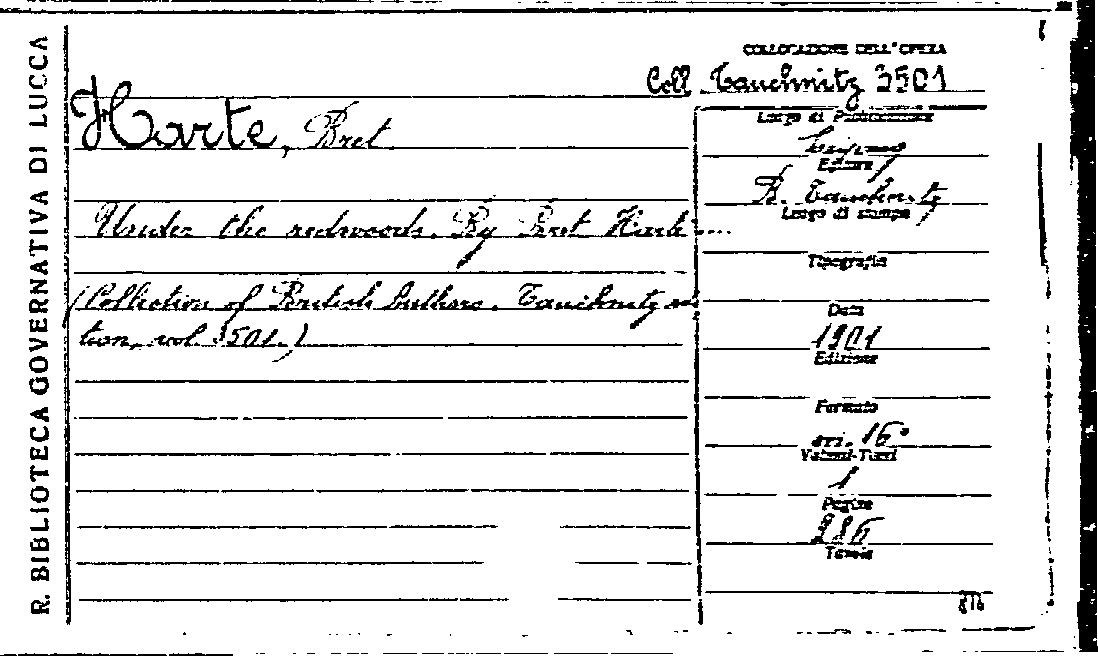 R. BIBLIOTECA GOVERNATIVA DI LUCCA
COLLOCAZIONE DELL'OPERA
Coll. Tauchnitz 3501
Harte, Bret
Under the redwoods. By Bret Harte....
(Collection of British Authors. Tauchnitz
tion, vol 3501.)
Luogo di Pubblicazione
Leipzig
Editore
B. Tauchnitz
Luogo di stampa
Tipografia
Data
1901
Edizione
Formato
16°
Volumi-Tomi
1
Pagine
286
Tavole